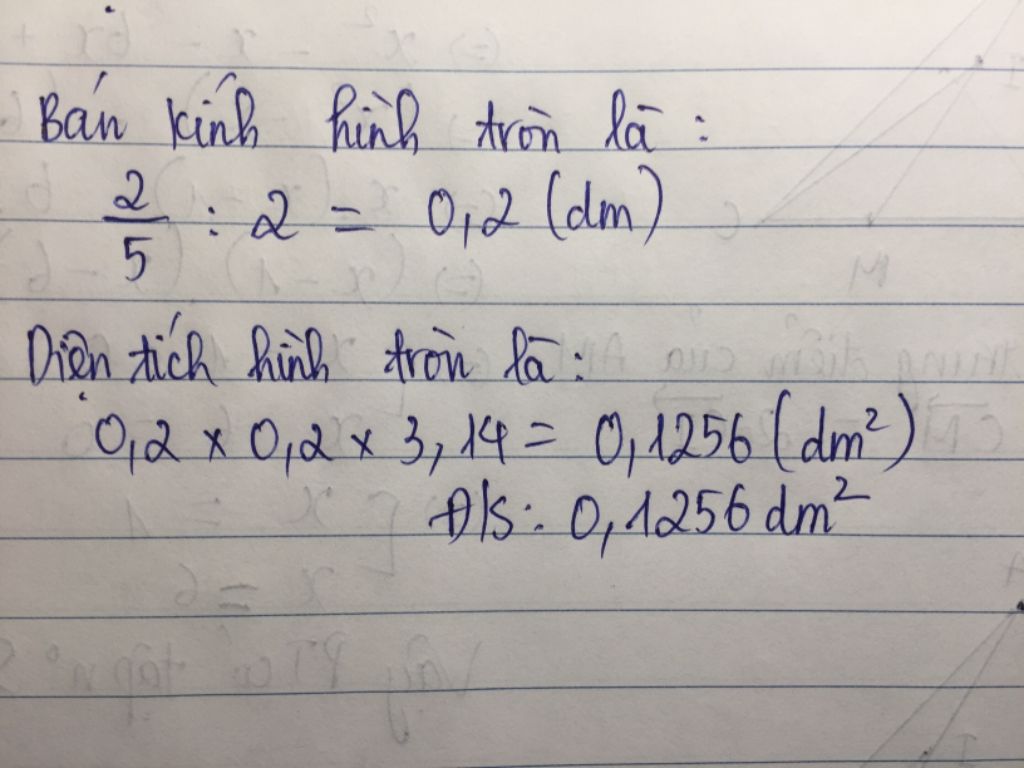 Bán kính hình tròn là :
2/5 : 2 = 0,2 (dm)
Diện tích hình tròn là :
0,2 x 0,2 x 3,14 = 0,1256 (dm²)
Đ/S : 0,1256 dm²